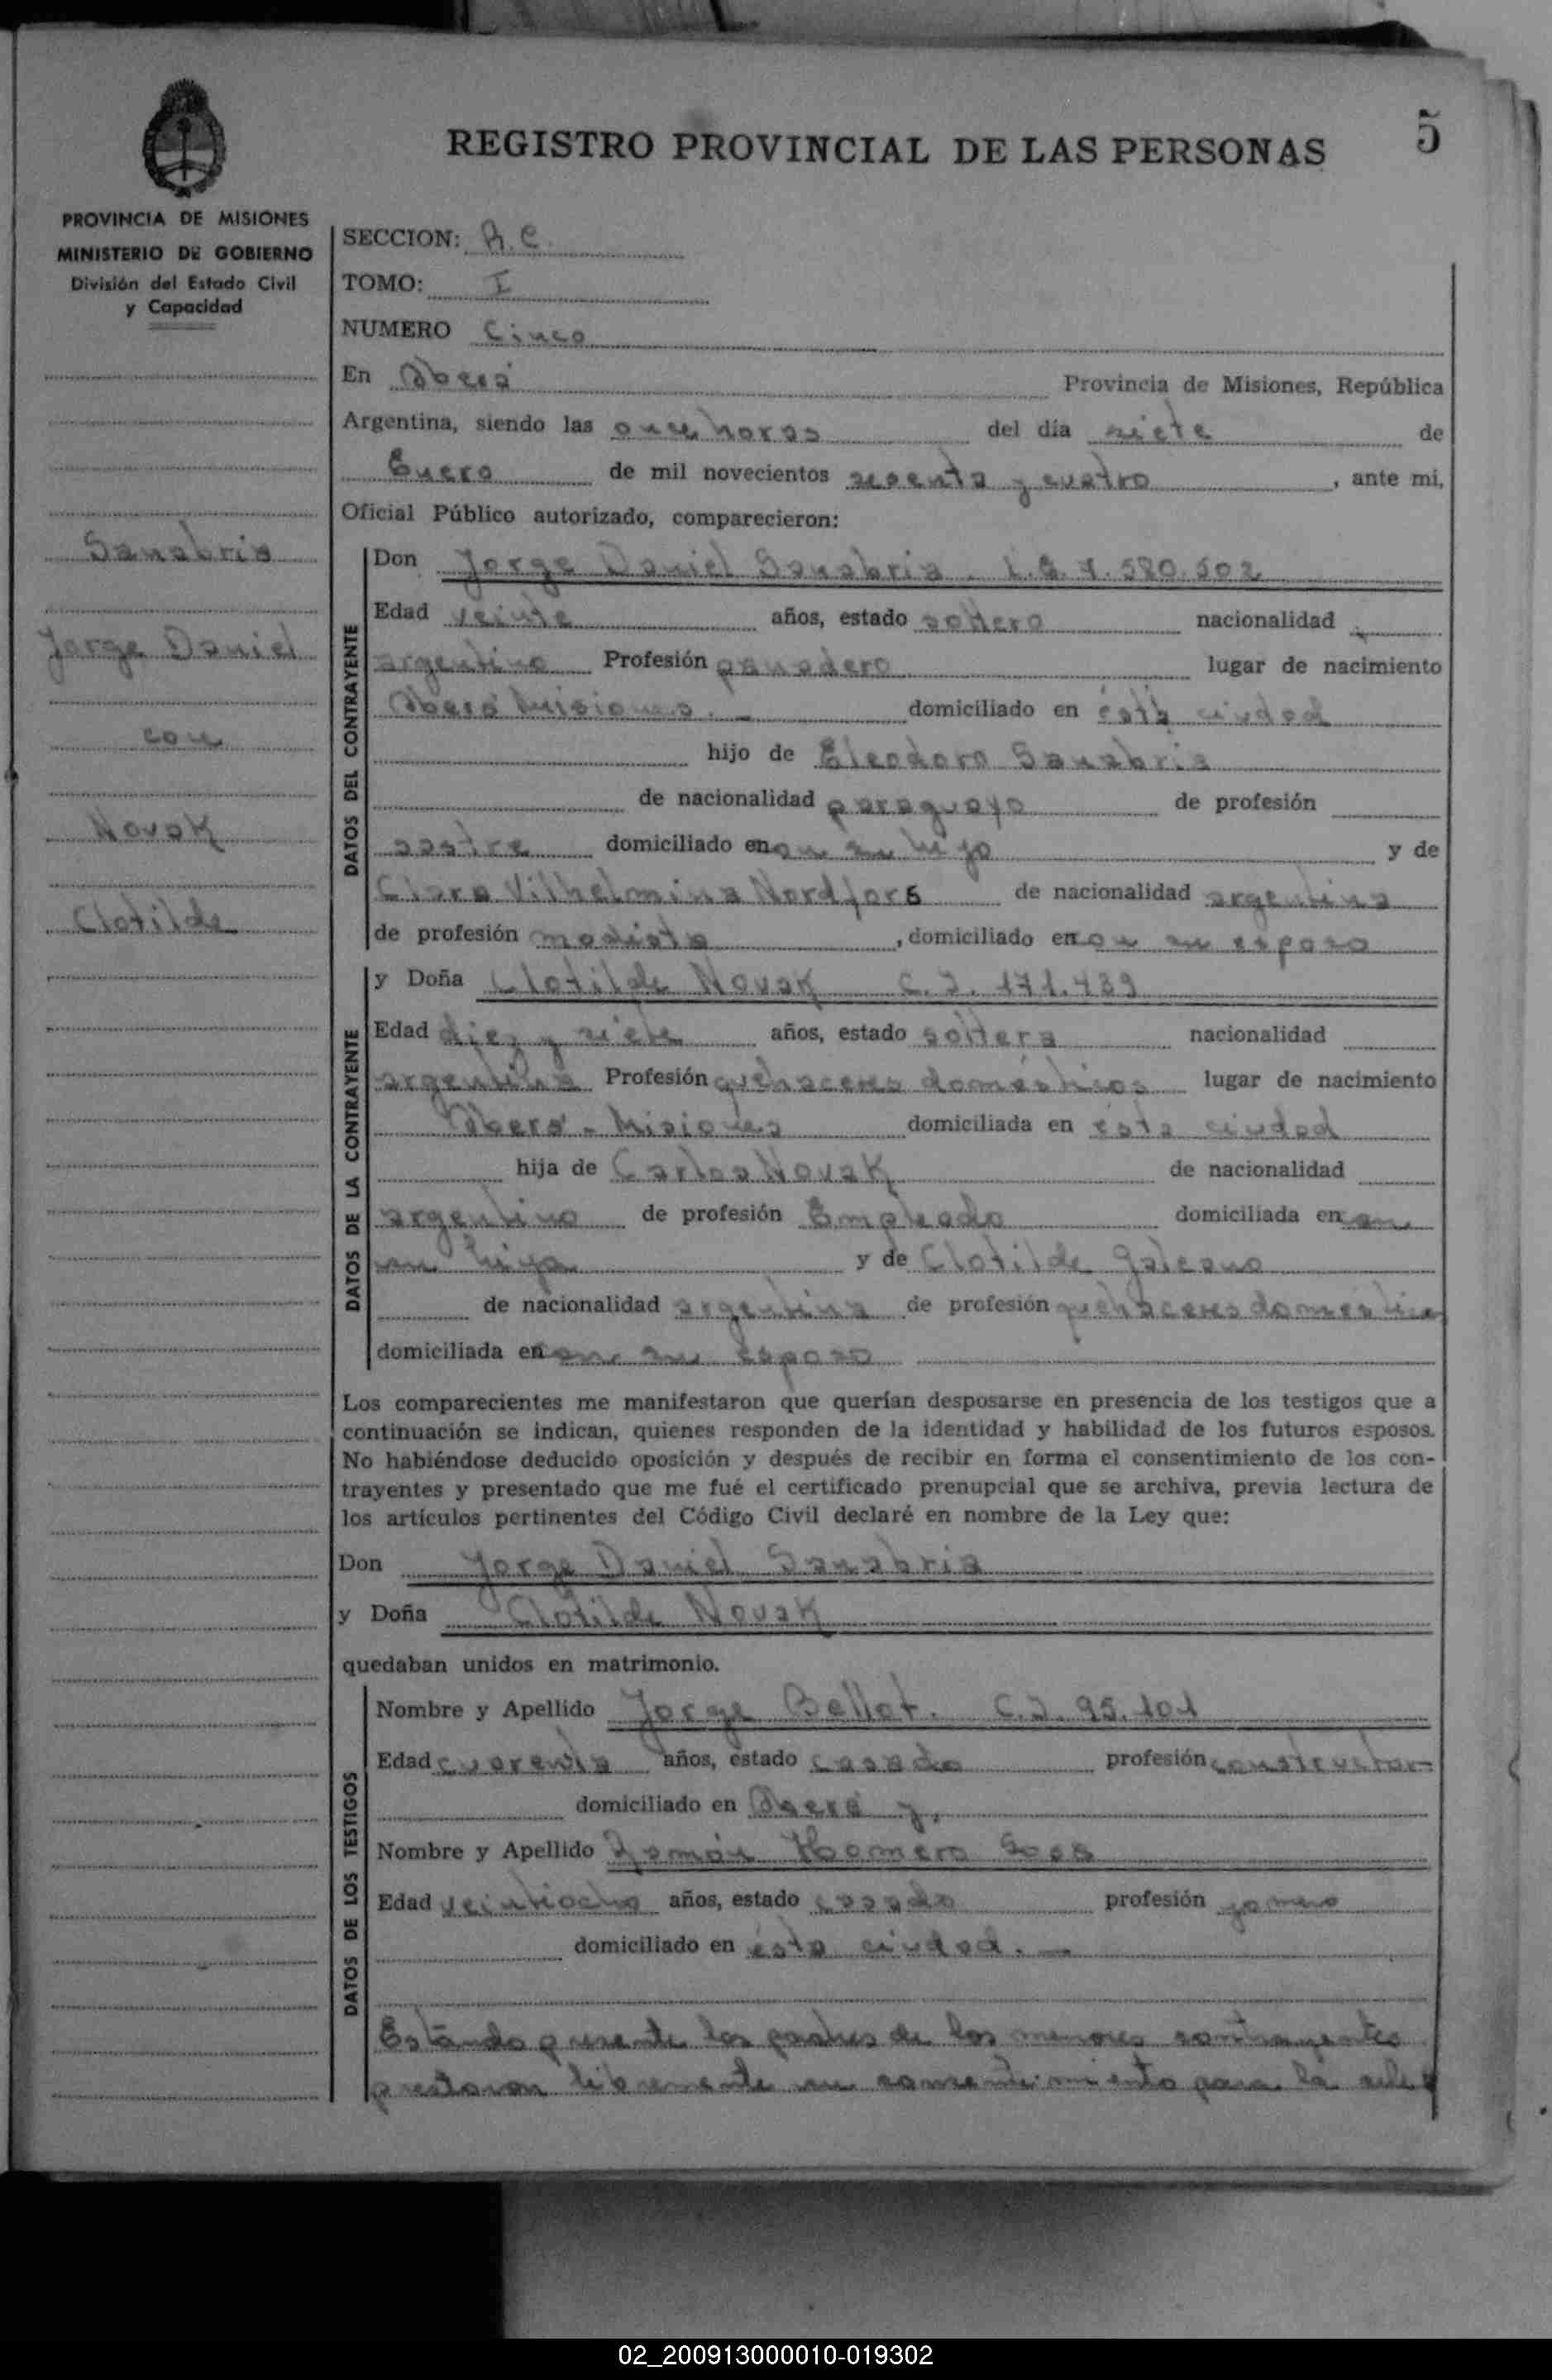 REGISTRO PROVINCIAL DE LAS PERSONAS
5
PROVINCIA DE MISIONES
MINISTERIO DE GOBIERNO
División del Estado Civil
y Capacidad
Sanabria
Jorge Daniel
con
Novak
Clotilde
SECCION: R.C.
TOMO: I
NUMERO Cinco
En Oberá Provincia de Misiones, República
Argentina, siendo las once horas del día siete de
Enero de mil novecientos sesenta y cuatro, ante mi,
Oficial Público autorizado, comparecieron:
DATOS DEL CONTRAYENTE
Don Jorge Daniel Sanabria. 580.502
Edad veinte años, estado soltero nacionalidad
argentino Profesión panadero lugar de nacimiento
Oberá Misiones. domiciliado en ésta ciudad
hijo de Eleodoro Sanabria
de nacionalidad paraguayo de profesión
sastre domiciliado en con su hijo y de
Clara Vilhelmina Nordfors de nacionalidad argentina
de profesión modista, domiciliado en con su esposo
DATOS DE LA CONTRAYENTE
y Doña Clotilde Novak C.I. 171.439
Edad diez y siete años, estado soltera nacionalidad
argentina Profesión quehaceres domésticos lugar de nacimiento
Oberá - Misiones domiciliada en ésta ciudad
hija de Carlos Novak de nacionalidad
argentino de profesión Empleado domiciliada en con
su hija y de Clotilde Galeano
de nacionalidad argentina de profesión quehaceres domésticos
domiciliada en con su esposo
Los comparecientes me manifestaron que querían desposarse en presencia de los testigos que a
continuación se indican, quienes responden de la identidad y habilidad de los futuros esposos.
No habiéndose deducido oposición y después de recibir en forma el consentimiento de los con-
trayentes y presentado que me fué el certificado prenupcial que se archiva, previa lectura de
los artículos pertinentes del Código Civil declaré en nombre de la Ley que:
Don Jorge Daniel Sanabria
y Doña Clotilde Novak
quedaban unidos en matrimonio.
DATOS DE LOS TESTIGOS
Nombre y Apellido Jorge Bellot. C.I. 95.101
Edad cuarenta años, estado casado profesión constructor
domiciliado en Oberá y,
Nombre y Apellido Ramón Homero
Edad veintiocho años, estado casado profesión
domiciliado en ésta ciudad.
Estando presente los padres de los menores contrayentes
prestaron libremente su consentimiento para la cele
02_200913000010-019302